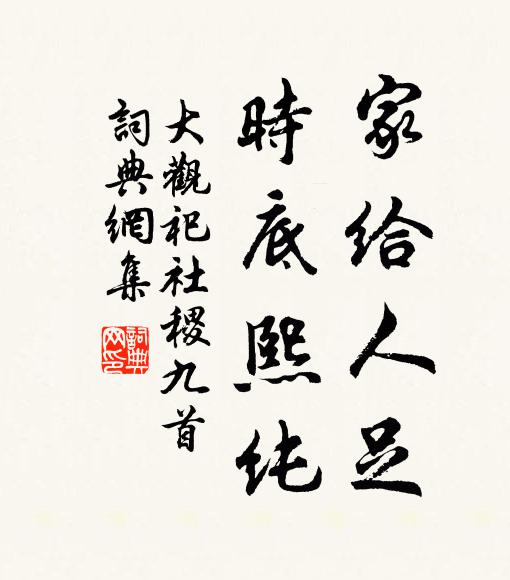 家給人足
時底熙纯
大觀祀社稷九首
詞典網集
詞典
网印